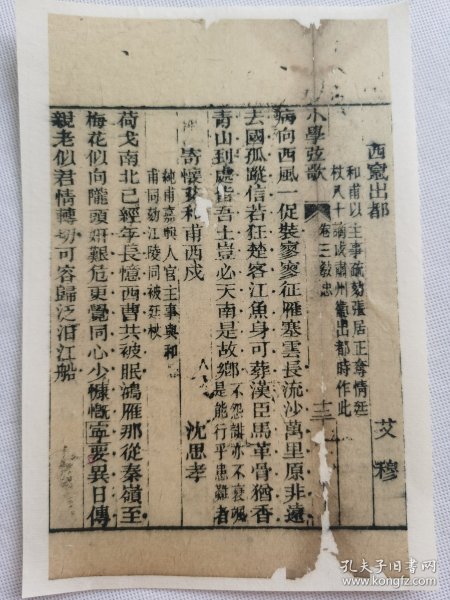 西竄出都
艾穆
和甫以主事疏劾張居正奪情廷
杖八十謫戍肅州出都時作此
小學弦歌
卷三教忠
十三
病向西風一促裝寥寥征雁塞雲長流沙萬里原非遠
去國孤蹤信若狂楚客江魚身可葬漢臣馬革骨猶香
青山到處皆吾土豈必天南是故鄉
不怨誹亦不衰颯
是能行乎患難者
寄懷艾和甫西戍
沈思孝
純甫嘉興人官主事與和
甫同劾江陵同被廷杖
荷戈南北已經年長憶西曹共被眠鴻雁那從秦嶺至
梅花似向隴頭妍艱危更覺同心少慷慨寧要異日傳
親老似君情轉切可容歸泛汨江船
孔夫子旧书网
www.kongfz.com